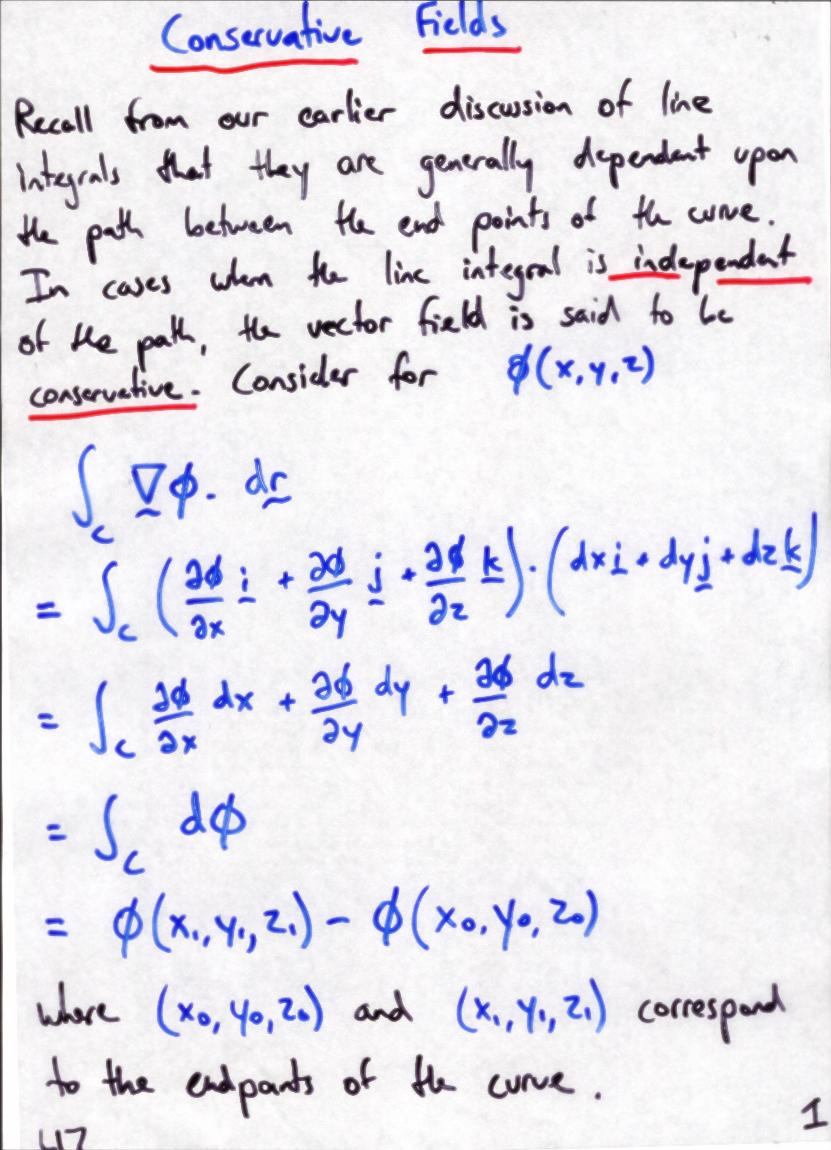 Conservative Fields
Recall from our earlier discussion of line
integrals that they are generally dependent upon
the path between the end points of the curve.
In cases when the line integral is independent
of the path, the vector field is said to be
conservative. Consider for ϕ(x,y,z)
∫_C ∇ϕ. dr
= ∫_C (∂ϕ/∂x i + ∂ϕ/∂y j + ∂ϕ/∂z k) . (dx i + dy j + dz k)
= ∫_C ∂ϕ/∂x dx + ∂ϕ/∂y dy + ∂ϕ/∂z dz
= ∫_C dϕ
= ϕ(x₁,y₁,z₁) - ϕ(x₀,y₀,z₀)
where (x₀,y₀,z₀) and (x₁,y₁,z₁) correspond
to the endpoints of the curve.
1
47